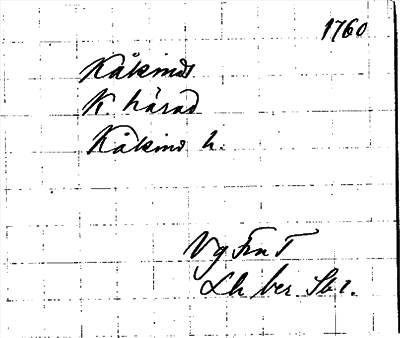 1760
Kåkinds
K. härad
Kåkind h.
Vg FrnT
Lh ber. Sb 1.